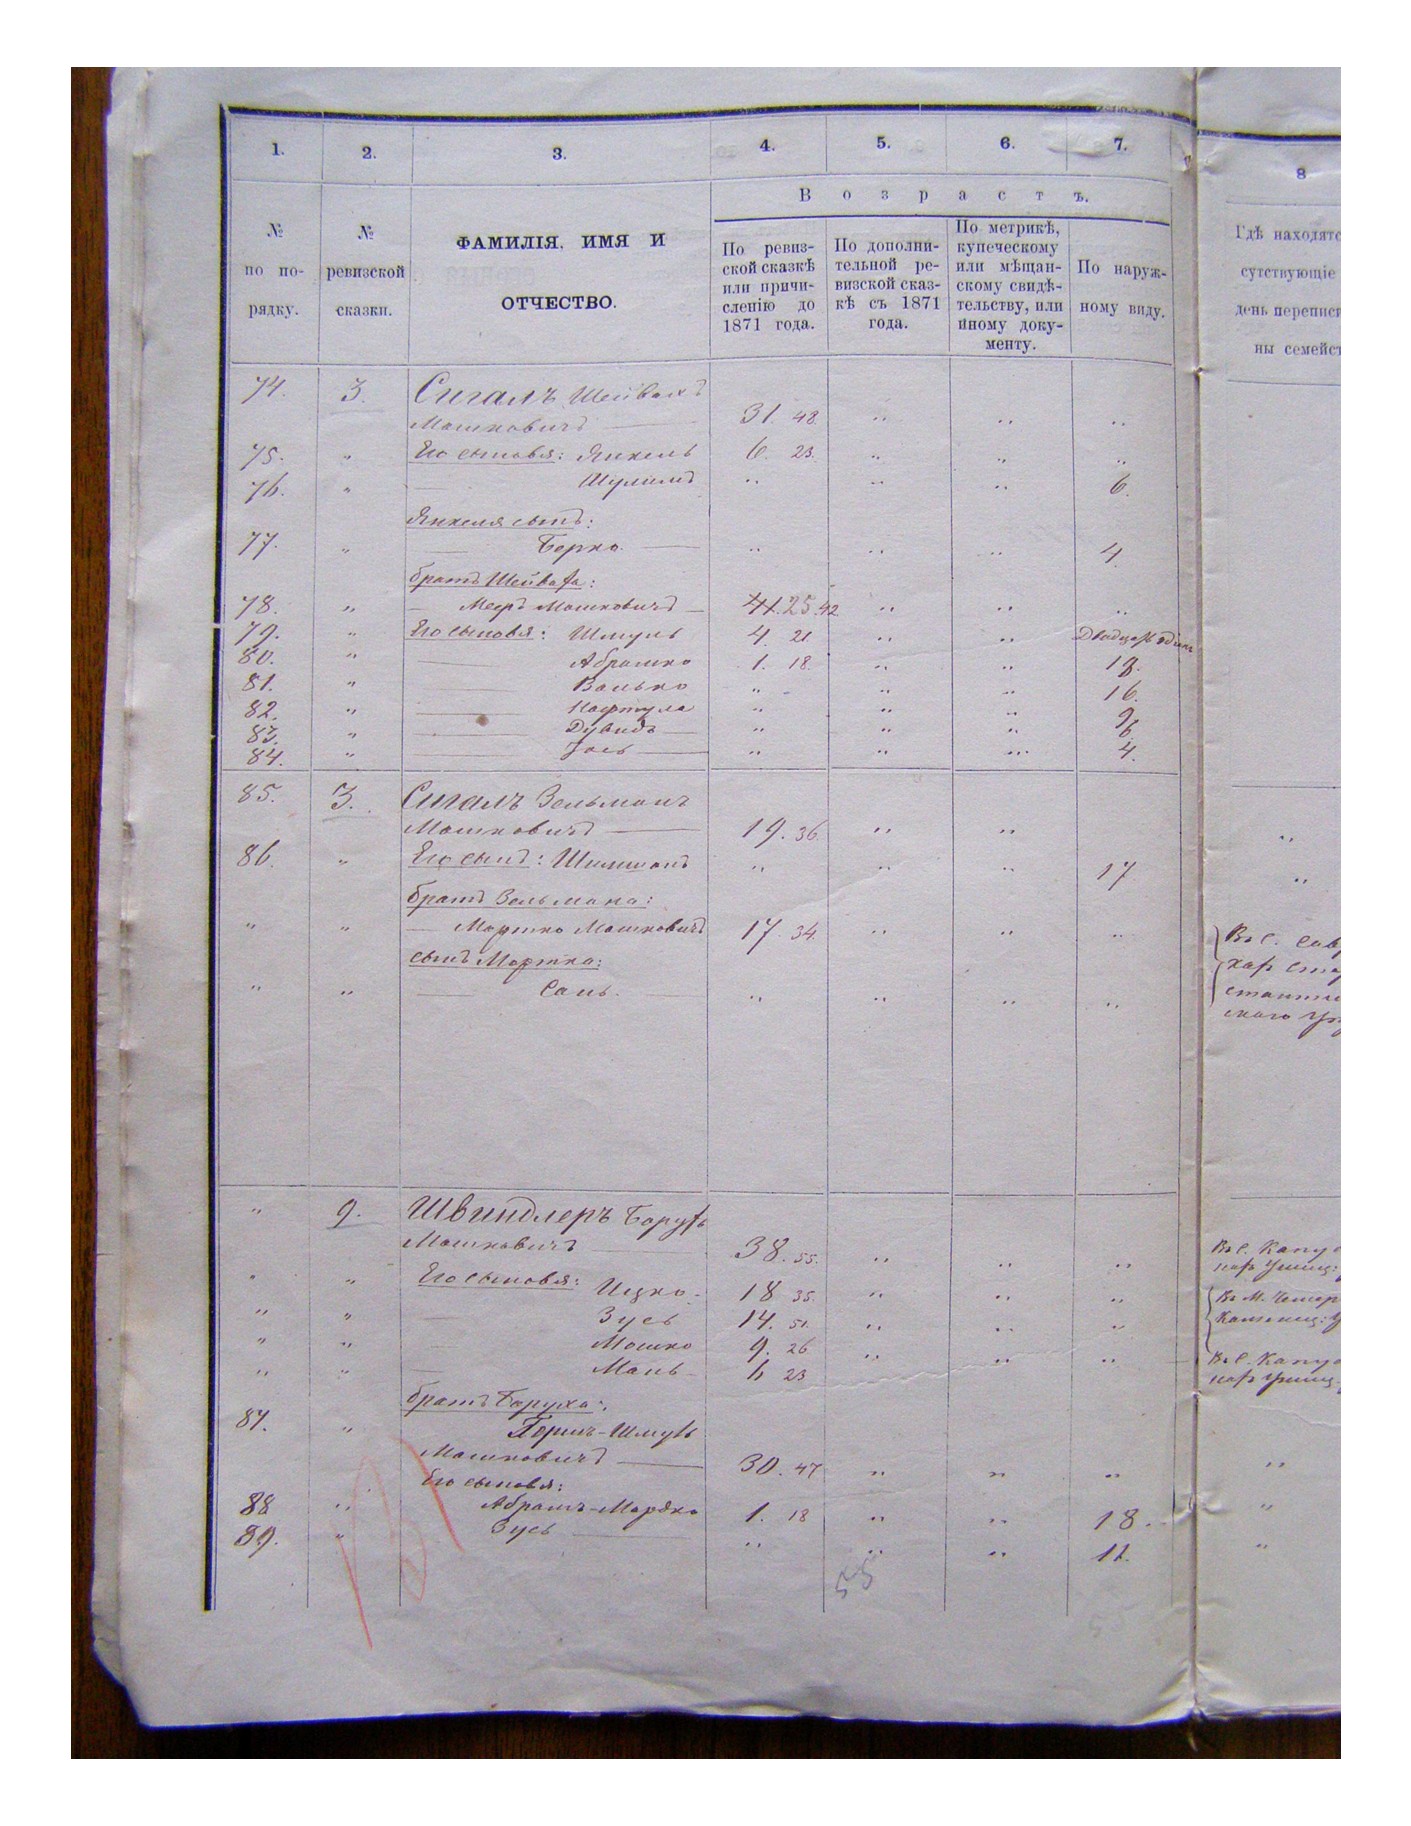 1. 2. 3. 4. 5. 6. 7. 8
Возрастъ.
№ по порядку.
№ ревизской сказки.
ФАМИЛІЯ, ИМЯ И
ОТЧЕСТВО.
По ревиз-
ской сказкѣ
или причи-
сленію до
1871 года.
По дополни-
тельной ре-
визской сказ-
кѣ съ 1871
года.
По метрикѣ,
купеческому
или мѣщан-
скому свидѣ-
тельству, или
иному доку-
менту.
По наруж-
ному виду.
Гдѣ находятс
сутствующіе
день переписи
ны семейст
74. 3. Сигалъ Шейвахъ
Мошковичъ 31. 48. " " "
75. " Его сыновья: Янкель 6. 23. " " "
76. " Шулимъ " " " 6.
Янкеля сынъ:
77. " Берко " " " 4.
братъ Шейваха:
78. " Меєръ Мошковичъ 25. 42 " " "
79. " Его сыновья: Шмуль 4. 21. " " Двадцать одинъ
80. " Абрамко 1. 18. " " 18.
81. " Волько " " " 16.
82. " Нафтула " " " 9
83. " Дувидъ " " " 6.
84. " Іось " " " 4.
85. 3. Сигалъ Зельманъ
Мошковичъ 19. 36. " "
86. " Его сынъ: Шимшонъ " " " 17
братъ Зельмана:
" " Мортко Мошковичъ 17. 34. " " "
сынъ Мортка:
" " " " " "
Въ С.
" 9. Швиндлеръ Борухъ
Мошковичъ 38. 55. " " "
" " Его сыновья: Ицко 18 35. " " "
" " Зусь 14. 51. " " "
" " Мошко 9. 26 " " "
" " Мань 6 23
братъ Боруха:
87. " Шмуль
Мошковичъ 30. 47 " " "
Его сыновья:
88 " Абрамъ-Мордко 1. 18 " " 18.
89. " Зусь " " " 12.
Въ С. Капу
Въ М.
Въ С. Капу
55